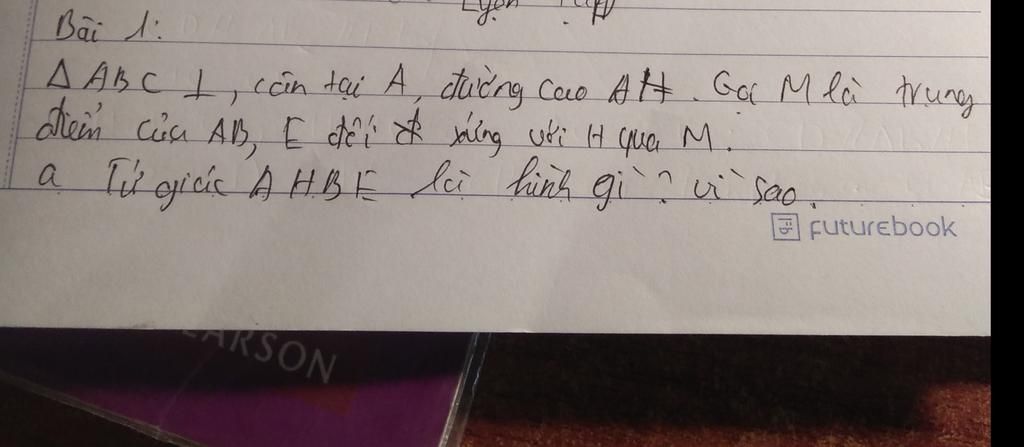 Luyện Tập
Bài 1:
Δ ABC ⊥, cân tại A, đường cao AH. Gọi M là trung
điểm của AB, E đối xứng với H qua M.
a Tứ giác AHBE là hình gì? vì sao.
futurebook
PEARSON